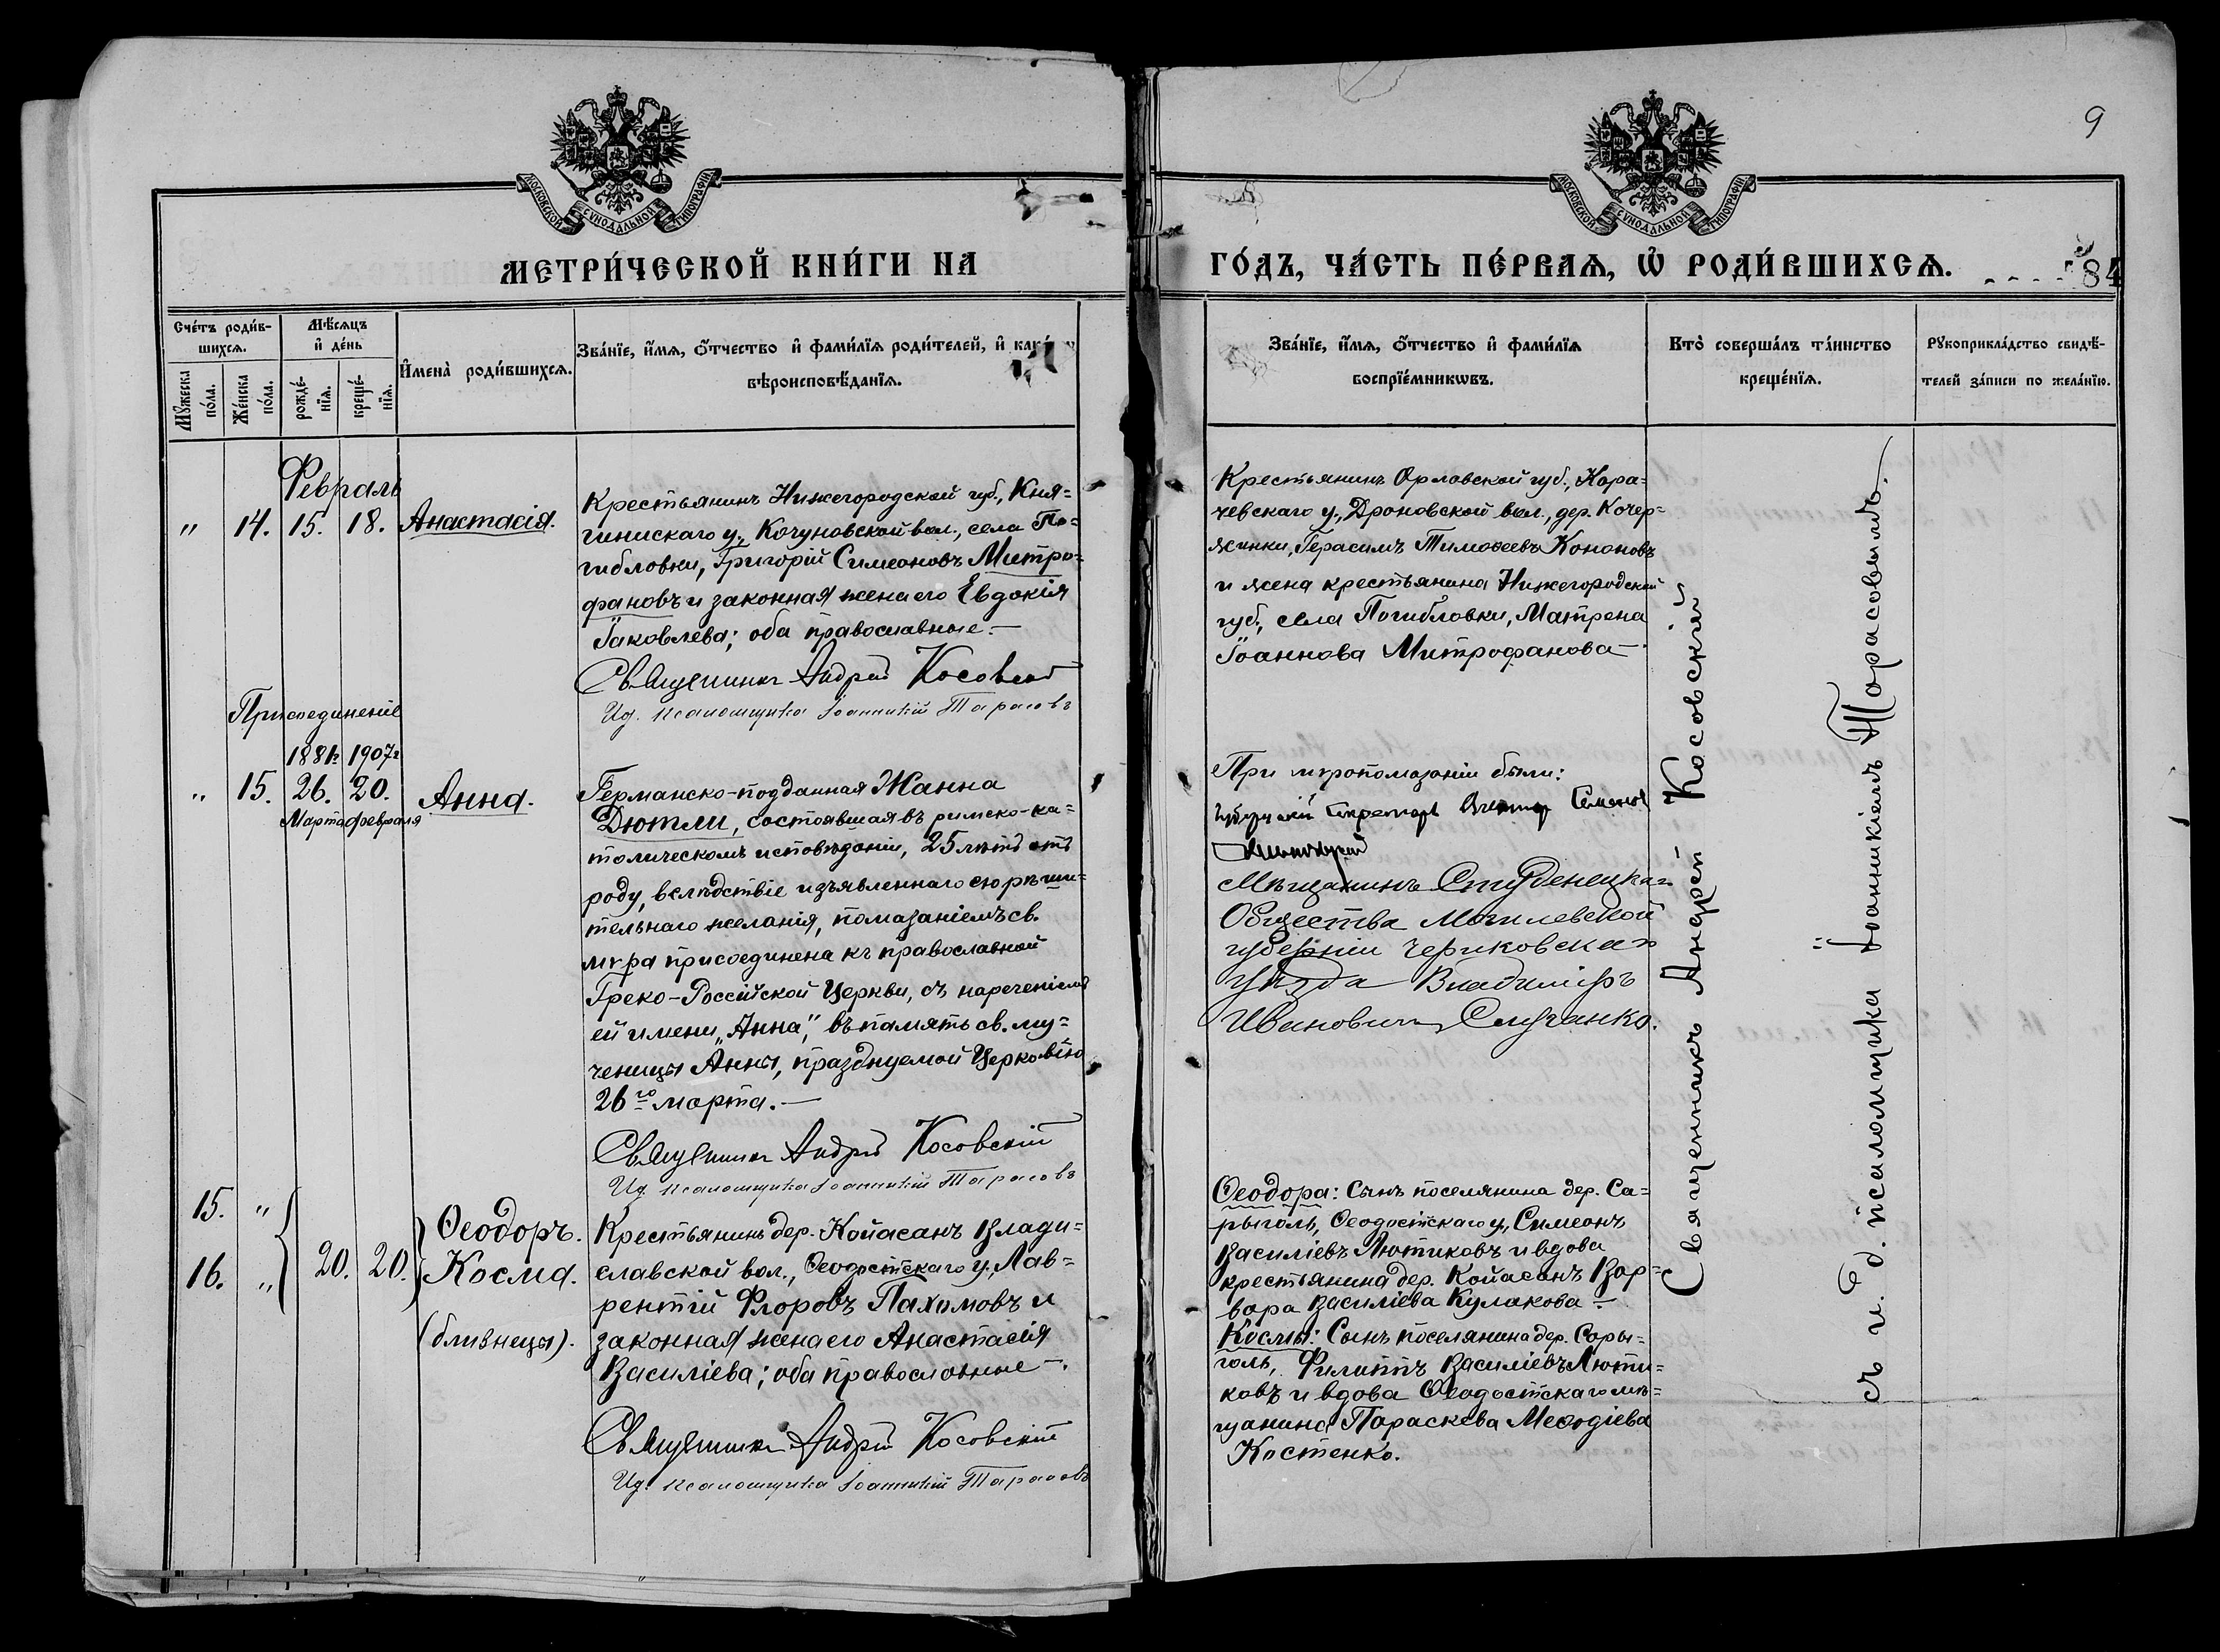 9
МОСКОВСКОЙ СѴНОДАЛЬНОЙ ТИПОГРАФІИ
МОСКОВСКОЙ СѴНОДАЛЬНОЙ ТИПОГРАФІИ
МЕТРИ́ЧЕСКОЙ КНИ́ГИ НА ГО́ДЪ, ЧА́СТЬ ПЕ́РВАѦ, Ѡ РОДИ́ВШИХСѦ.
84
Сче́тъ роди́в-
шихсѧ.
Мꙋжеска по́ла.
Же́нска по́ла.
Мѣ́сѧцъ
и҆ де́нь
рожде́-
нїѧ.
креще́-
нїѧ.
И҆мена̀ роди́вшихсѧ.
Зва́нїе, и҆́мѧ, ѻ҆́тчество и҆ фами́лїѧ роди́телей, и҆ како́
вѣроисповѣ́данїѧ.
Зва́нїе, и҆́мѧ, ѻ҆́тчество и҆ фами́лїѧ
воспрїе́мникѡвъ.
Кто̀ соверша́лъ та́инство
креще́нїѧ.
Рꙋкоприкла́дство свидѣ́-
телей за́писи по жела́нїю.
Февраль
" 14. 15. 18. Анастасія.
Крестьянинъ Нижегородской губ., Кня=
гинискаго у., Кочуновской вол., села По=
гибловки, Григорій Симеоновъ Митро=
фановъ и законная жена его Евдокія
Іаковлева; оба православные.—
Священникъ Андрей Косовскій
И.д. псаломщика Іоанникій Тарасовъ
Крестьянинъ Орловской губ., Кара=
чевскаго у., Дроновской вол., дер. Кочер=
яжинки, Герасимъ Тимоѳеевъ Кононовъ
и жена крестьянина Нижегородской
губ., села Погибловки, Матрена
Іоаннова Митрофанова—.
Присоединеніе
1881г. 1907г.
" 15. 26. 20. Анна.
Марта февраля
Германско-подданная Жанна
Дютли, состоявшая въ римско-ка=
толическомъ исповѣданіи, 25 лѣтъ отъ
роду, вслѣдствіе изъявленнаго ею рѣши=
тельнаго желанія, помазаніемъ св.
мѵра присоединена къ православной
Греко-Россійской Церкви, съ нареченіемъ
ей имени „Анна", въ память св. му=
ченицы Анны, празднуемой Церковію
26го марта.—
Священникъ Андрей Косовскій
И.д. псаломщика Іоанникій Тарасовъ
При мѵропомазаніи были:
Губернскій Секретарь Семенов
Мѣщанинъ Студенецкаго
Общества Могилевской
губерніи Чериковскаго
уѣзда Владиміръ
Ивановичъ Случанко.
15. " 20. 20. Ѳеодоръ.
16. " Косма.
(близнецы).
Крестьянинъ дер. Койасанъ Влади=
славской вол., Ѳеодосійскаго у., Лав=
рентій Флоровъ Пахомовъ и
законная жена его Анастасія
Василіева; оба православные—.
Священникъ Андрей Косовскій
И.д. псаломщика Іоанникій Тарасовъ
Ѳеодора: Сынъ поселянина дер. Са=
рыголь, Ѳеодосійскаго у., Симеонъ
Василіевъ Лютиковъ и вдова
крестьянина дер. Койасанъ Вар=
вара Василіева Кулакова—.
Космы: Сынъ поселянина дер. Сары=
голь, Филиппъ Василіевъ Люти=
ковъ и вдова Ѳеодосійскаго мѣ=
щанина Параскева Меѳодіева
Костенко.
Священникъ Андрей Косовскій
съ и. д. псаломщика Іоанникіемъ Тарасовымъ.